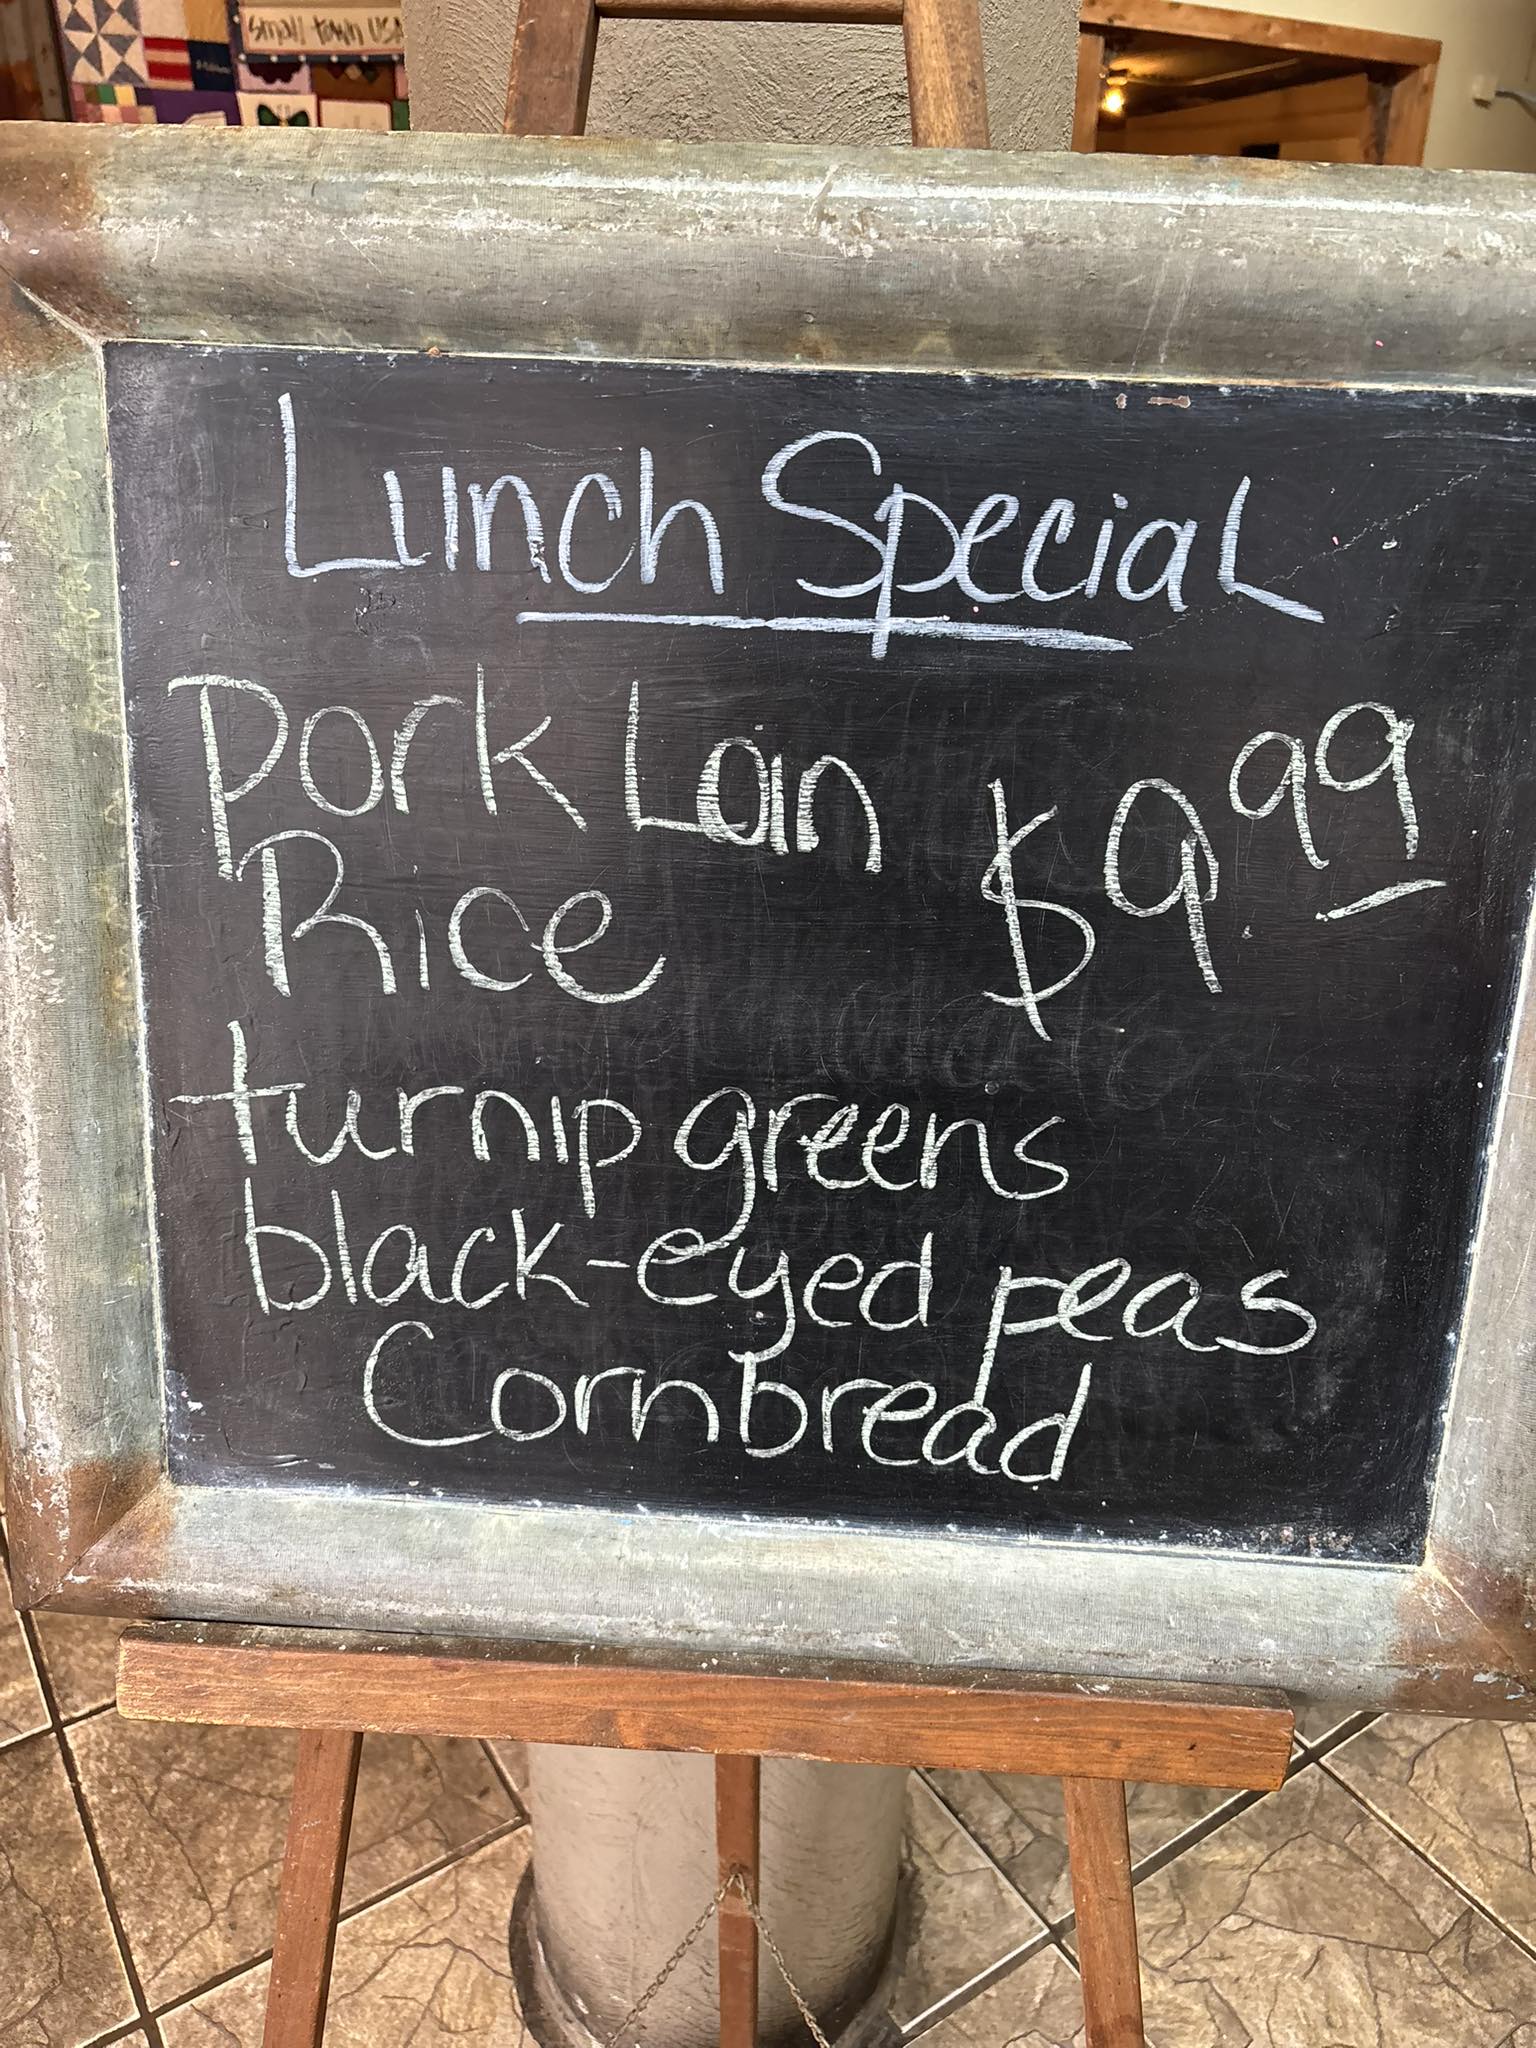 small town USA
Lunch Special
Pork Loin
Rice
$9.99
turnip greens
black-eyed peas
Cornbread